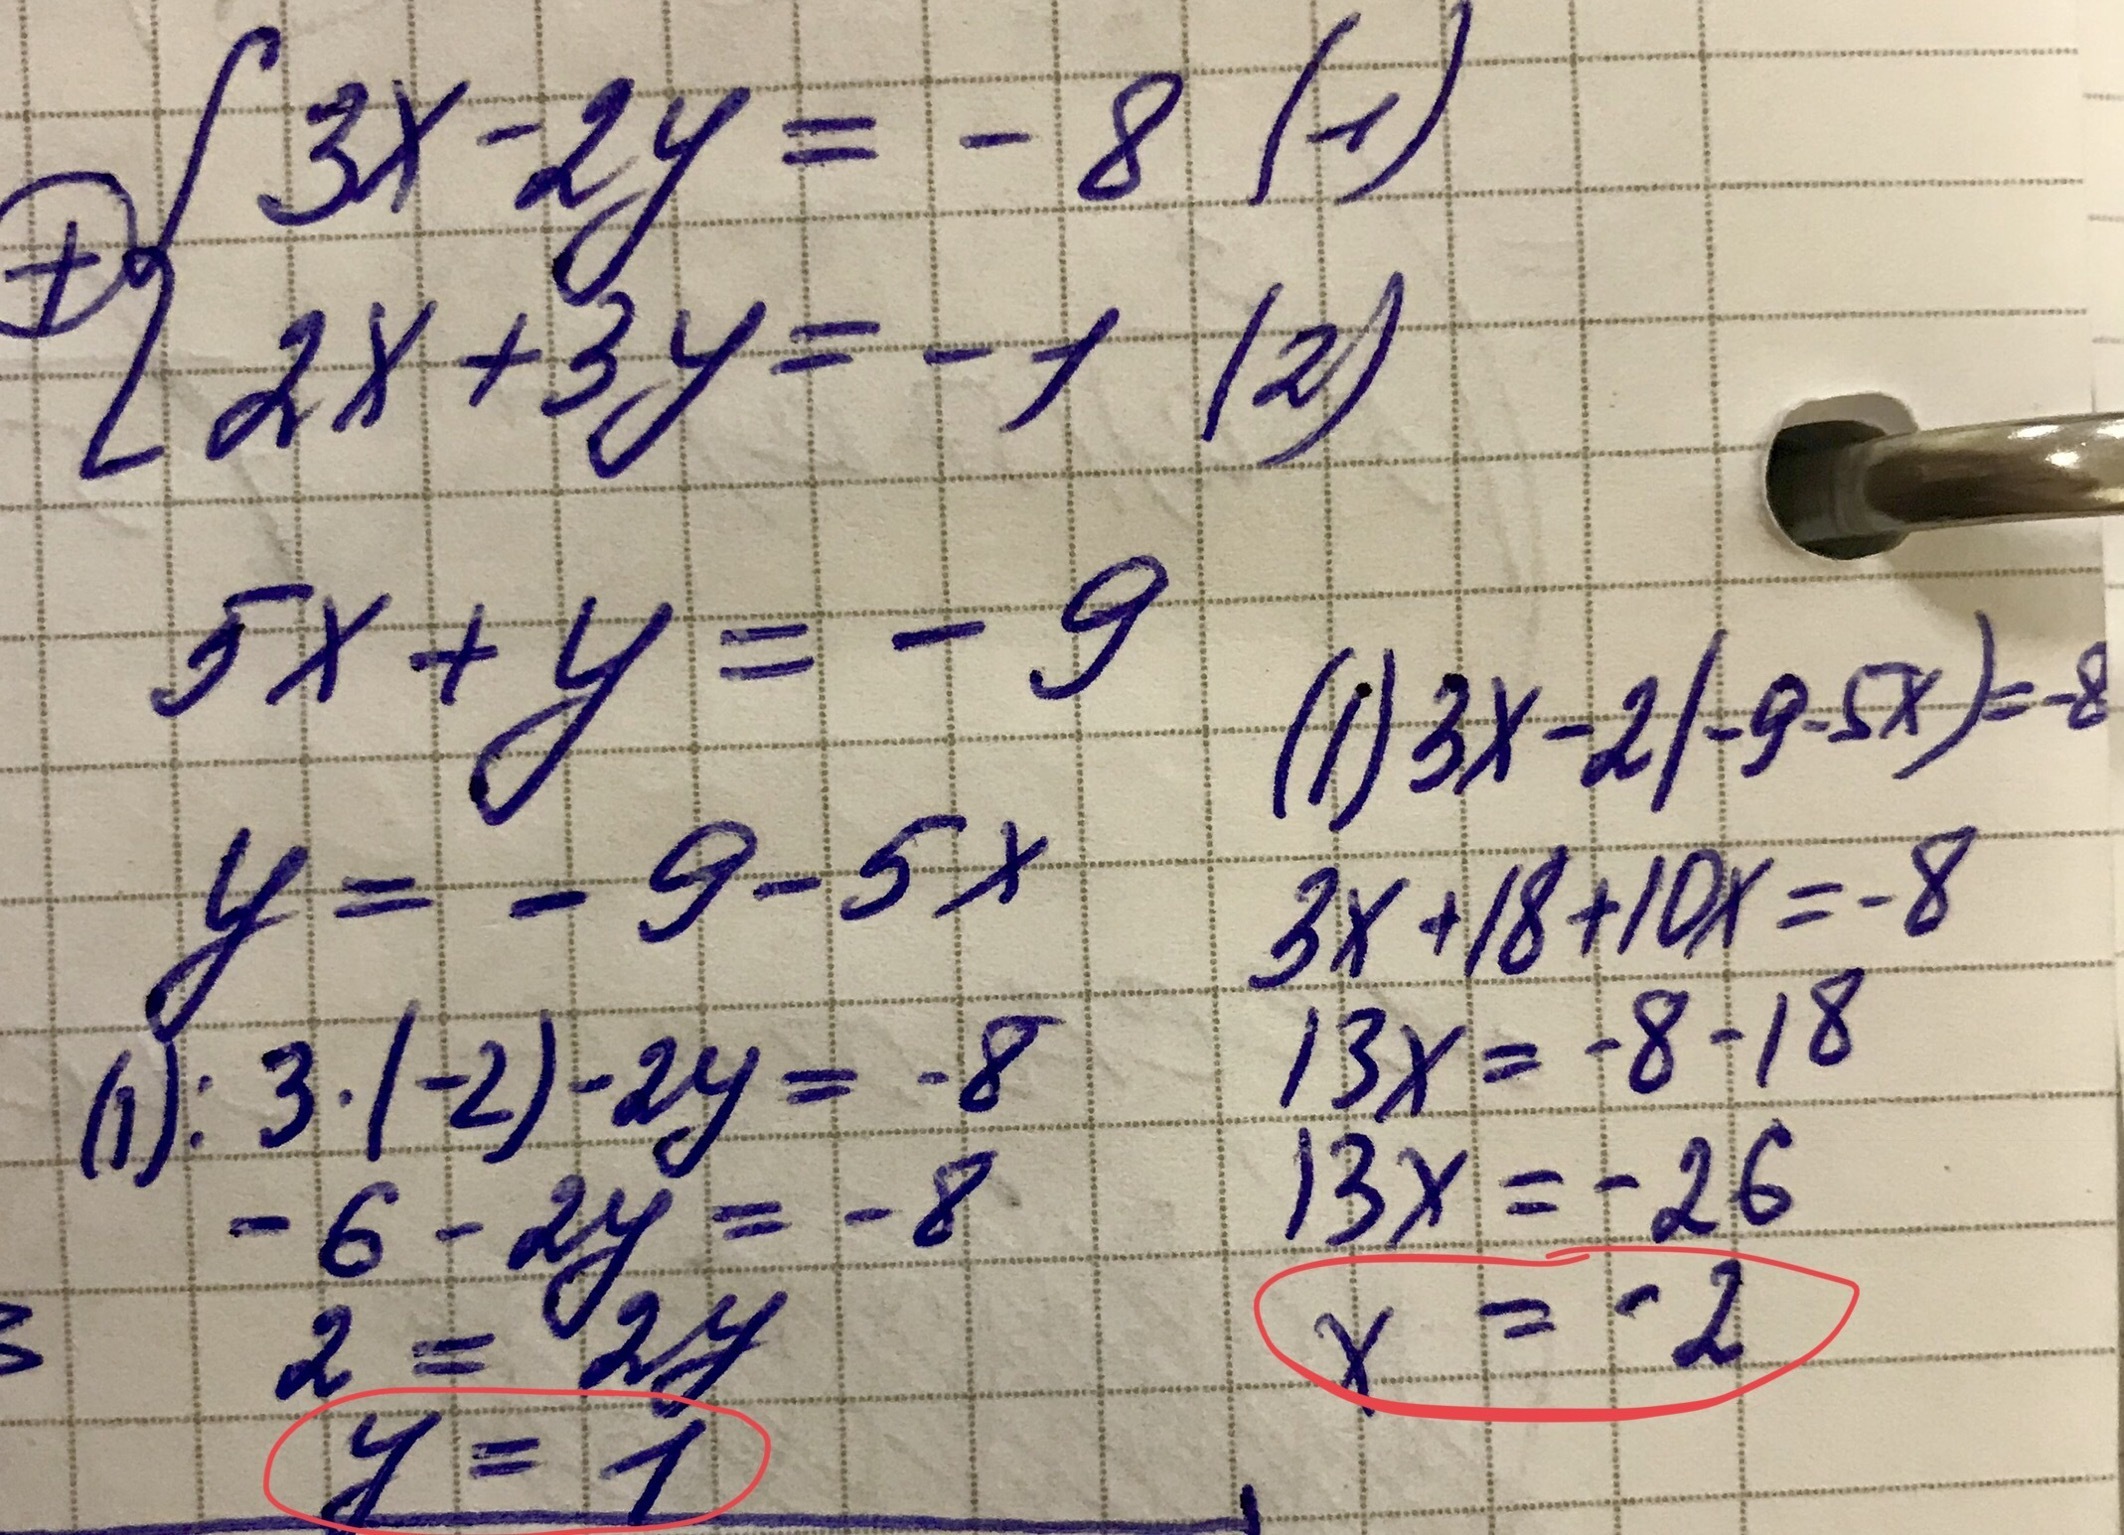 3x - 2y = - 8 (1)
+
2x + 3y = - 1 (2)
5x + y = - 9
y = - 9 - 5x
(1): 3·(-2) - 2y = -8
- 6 - 2y = - 8
2 = 2y
y = 1
(1) 3x - 2(-9-5x) = -8
3x + 18 + 10x = -8
13x = -8 - 18
13x = -26
x = -2
3